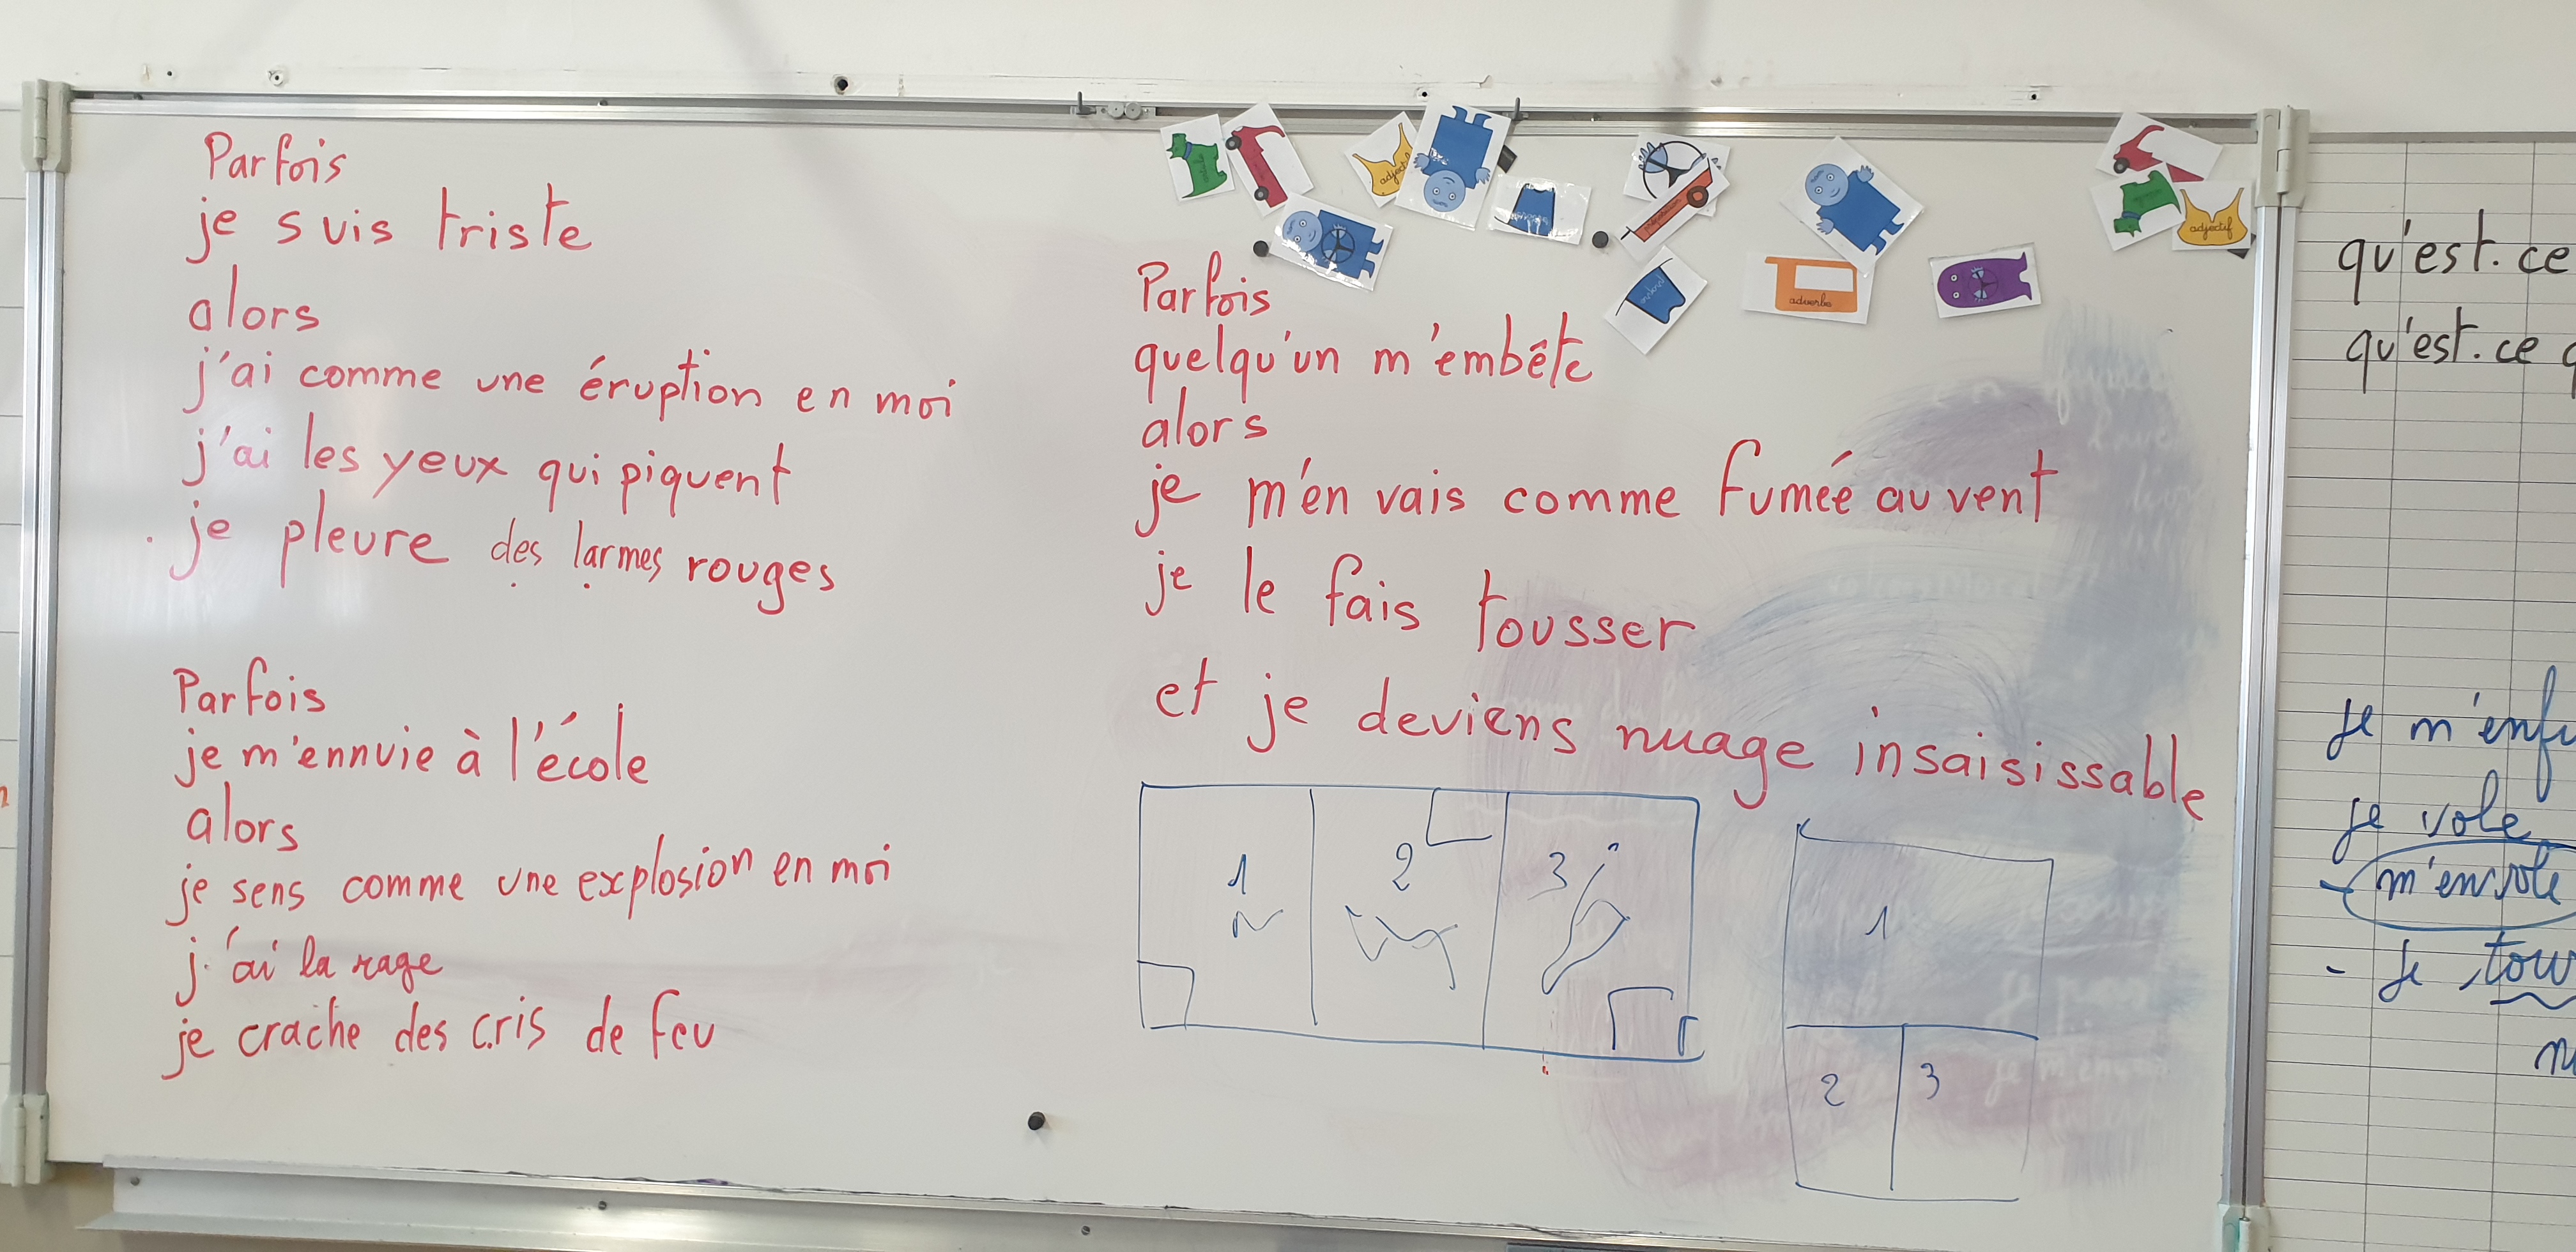 Parfois
je suis triste
alors
j'ai comme une éruption en moi
j'ai les yeux qui piquent
je pleure des larmes rouges
Parfois
je m'ennuie à l'école
alors
je sens comme une explosion en moi
j'ai la rage
je crache des cris de feu
Parfois
quelqu'un m'embête
alors
je m'en vais comme fumée au vent
je le fais tousser
et je deviens nuage insaisissable
1 2 3
1
2 3
adjectif
adverbe
adjectif
qu'est-ce
qu'est-ce
je m'enfu
je vole
m'envole
- je tour